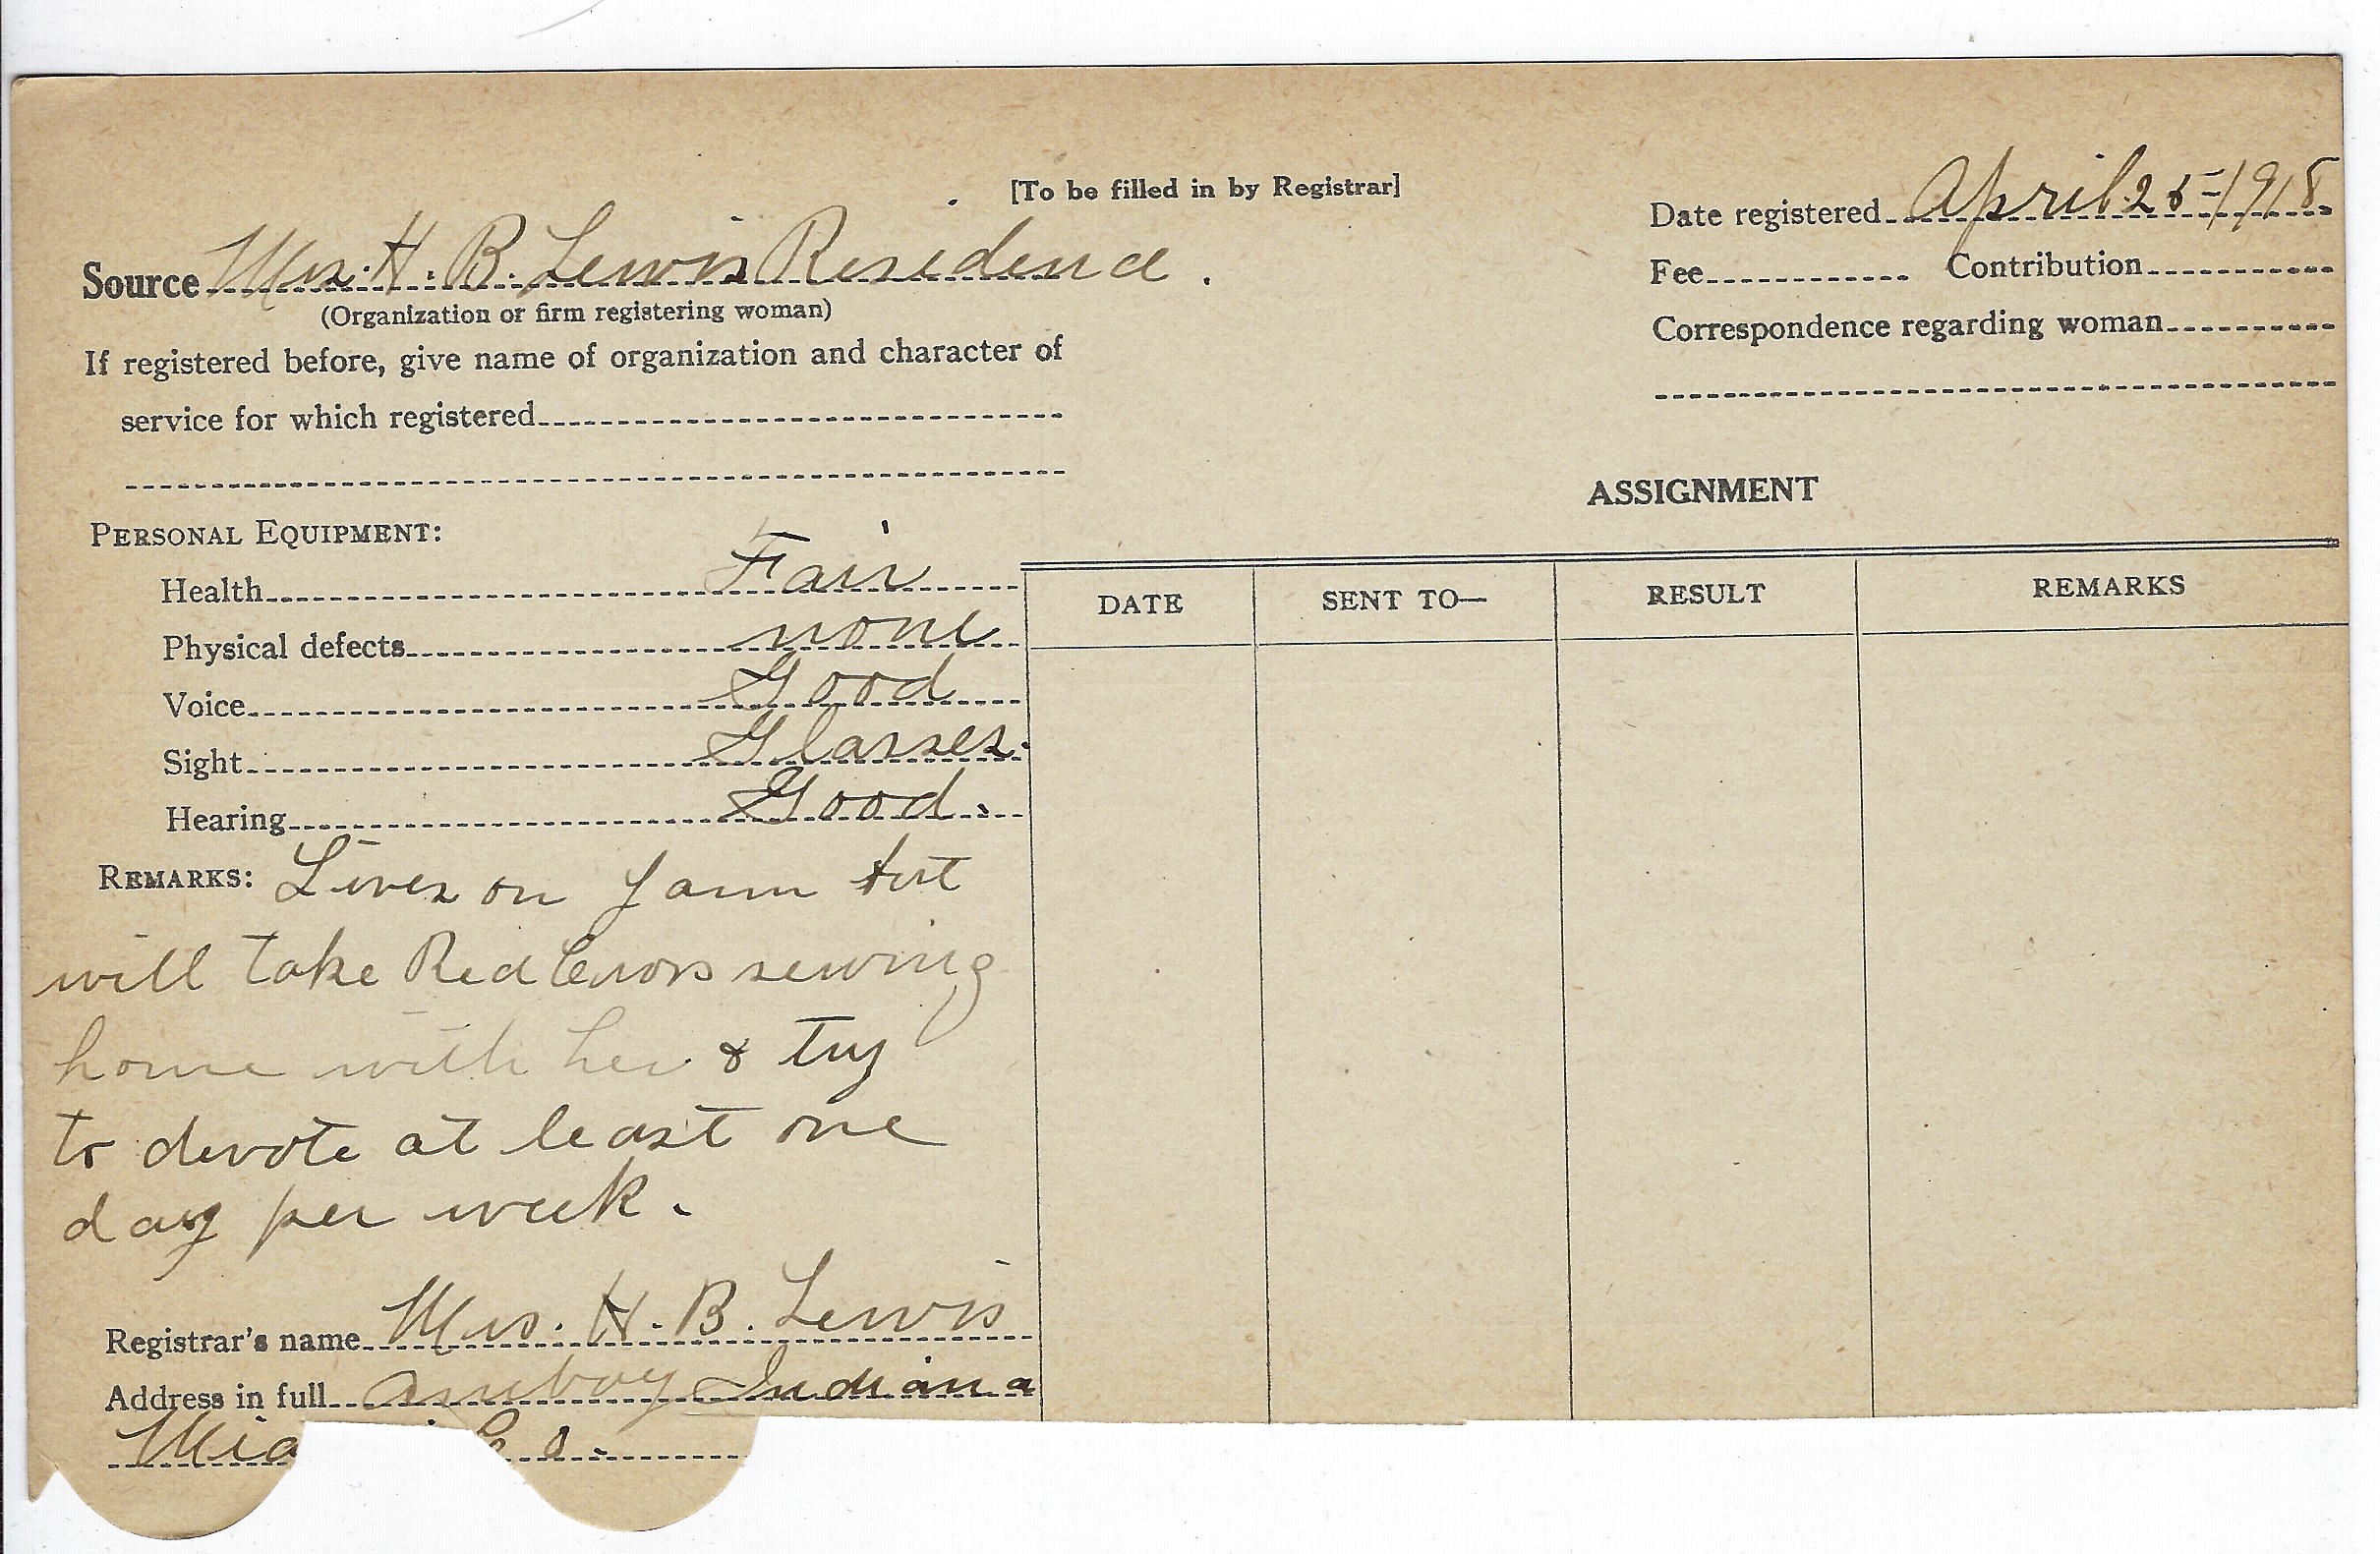 [To be filled in by Registrar]
Date registered April 25-1918.
Source Mrs. H. B. Lewis Residence.
(Organization or firm registering woman)
Fee Contribution
Correspondence regarding woman
If registered before, give name of organization and character of
service for which registered
ASSIGNMENT
PERSONAL EQUIPMENT:
Health Fair
Physical defects none
Voice Good
Sight Glasses.
Hearing Good.
DATE SENT TO— RESULT REMARKS
REMARKS: Lives on farm but
will take Red Cross sewing
home with her & try
to devote at least one
day per week.
Registrar's name Mrs. H. B. Lewis
Address in full Amboy Indiana
Co.